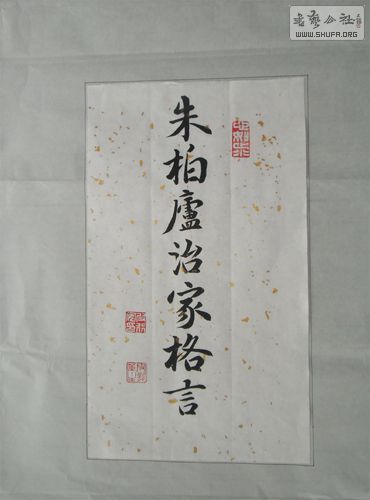 朱柏廬治家格言
書藝公社
WWW.SHUFA.ORG